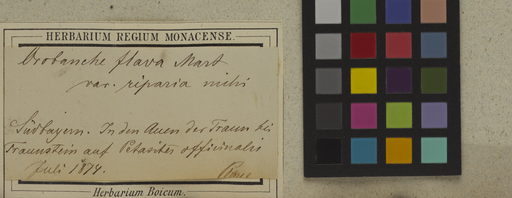 HERBARIUM REGIUM MONACENSE.
Orobanche flava Mart
var. riparia mihi
Südbayern. In den Auen der Traun bei
Traunstein auf Petasites officinalis
Juli 1874.
Herbarium Boicum.